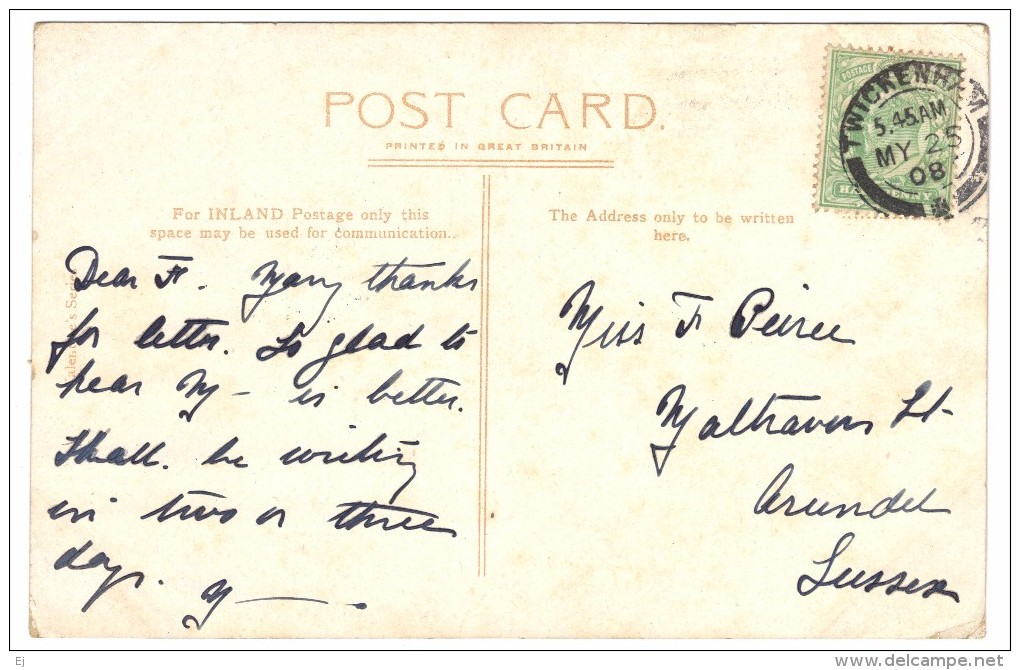 POST CARD.
PRINTED IN GREAT BRITAIN
POSTAGE
TWICKENHAM
5.45 AM
MY 25
08
For INLAND Postage only this
space may be used for communication.
The Address only to be written
here.
Dear F. Many thanks
for letter. So glad to
hear M — is better.
Shall be writing
in two or three
days. M — .
Miss F Peirce
Maltravers St
Arundel
Sussex
Ej
delcampe.net